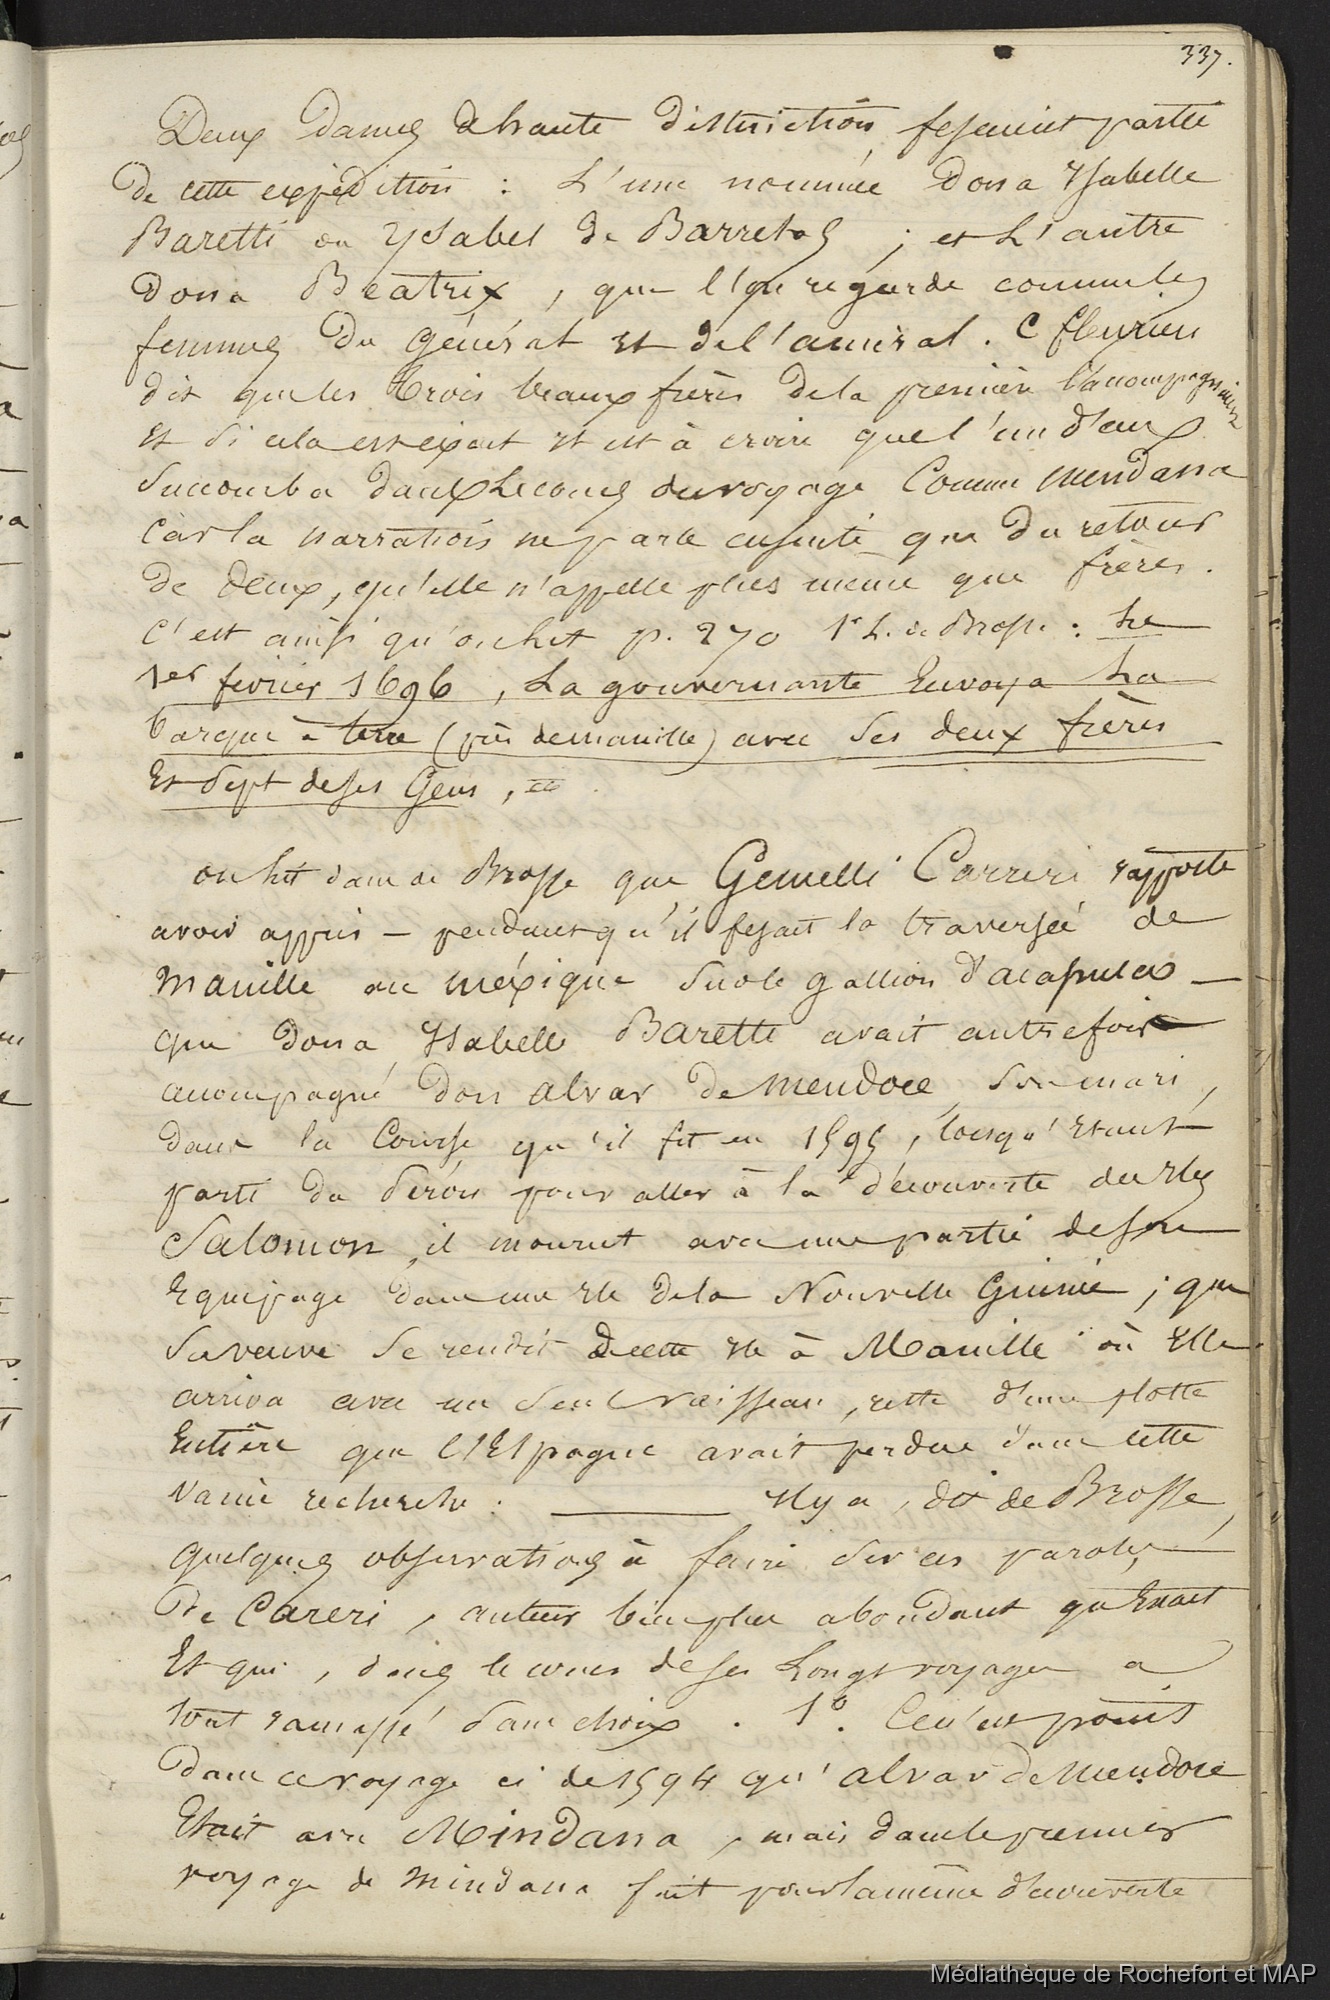 337.
Deux dames de haute distinction fesaient partie
de cette expédition : L'une nommée dona Ysabelle
Baretti ou Ysabel de Barretos ; et L'autre
dona Beatrix, que l'on regarde comme les
femmes du général et de l'amiral. C fleurieu
dit que les trois beaux frères de la première l'accompagnaient
et si cela est exact il est à croire que l'un d'eux
succomba dans le cours du voyage Comme mendana
car la narration ne parle ensuite que du retour
de deux, qu'elle n'appelle plus même que frères.
C'est ainsi qu'on lit p. 270 1r L. de Brosse : Le
1er fevrier 1696, La gouvernante Envoya La
barque à terre (près de manille) avec Ses deux frères
Et Sept de ses Gens, &c
on Lit dans de Brosse que Gemelli Carreri rapporte
avoir appris — pendant qu'il fesait la traversée de
Manille au méxique sur le gallion d'acapulco —
que dona Isabelle Barette avait autrefois
accompagné don alvar de Mendoce, son mari,
dans la Course qu'il fit en 1595, lorsqu'Etant
parti du Pérou pour aller à la découverte des Iles
Salomon, il mourut avec une partie de son
Equipage dans une Ile de la Nouvelle Guinée ; que
sa veuve se rendit de cette Ile à Manille où Elle
arriva avec un seul vaisseau, reste d'une flotte
Entière que l'Espagne avait perdue dans cette
vaine recherche. — Il y a, dit de Brosse,
quelques observations à faire sur ces paroles
De Careri, auteur bien plus abondant qu'Exact
Et qui, dans le cours de ses Longs voyages a
tout ramassé sans choix. 1°. Ce n'est point
dans ce voyage ci de 1594 qu'alvar de Mendoce
Etait avec Mindana, mais dans le premier
voyage de Mindana fait pour la même découverte
Médiathèque de Rochefort et MAP